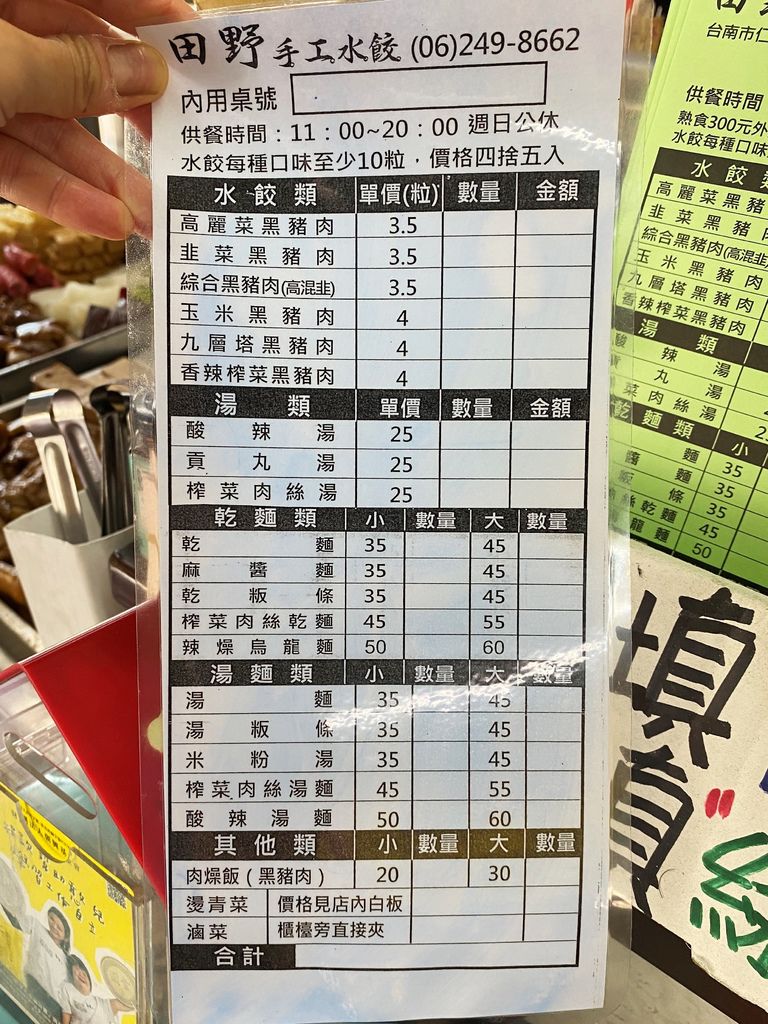 田野手工水餃 (06)249-8662
內用桌號
供餐時間：11：00~20：00 週日公休
水餃每種口味至少10粒，價格四捨五入
水餃類 單價(粒) 數量 金額
高麗菜黑豬肉 3.5
韭菜黑豬肉 3.5
綜合黑豬肉(高混韭) 3.5
玉米黑豬肉 4
九層塔黑豬肉 4
香辣榨菜黑豬肉 4
湯類 單價 數量 金額
酸辣湯 25
貢丸湯 25
榨菜肉絲湯 25
乾麵類 小 數量 大 數量
乾麵 35 45
麻醬麵 35 45
乾粄條 35 45
榨菜肉絲乾麵 45 55
辣燥烏龍麵 50 60
湯麵類 小 數量 大 數量
湯麵 35 45
湯粄條 35 45
米粉湯 35 45
榨菜肉絲湯麵 45 55
酸辣湯麵 50 60
其他類 小 數量 大 數量
肉燥飯（黑豬肉） 20 30
燙青菜 價格見店內白板
滷菜 櫃檯旁直接夾
合計
台南市仁
供餐時間
熟食300元外
水餃每種口味
水餃類
高麗菜黑豬肉
韭菜黑豬肉
綜合黑豬肉(高混韭)
玉米黑豬肉
九層塔黑豬肉
香辣榨菜黑豬肉
湯類
酸辣湯
貢丸湯
菜肉絲湯
乾麵類 小
醬麵 35
粄條 35
絲乾麵 45
龍麵 50
填